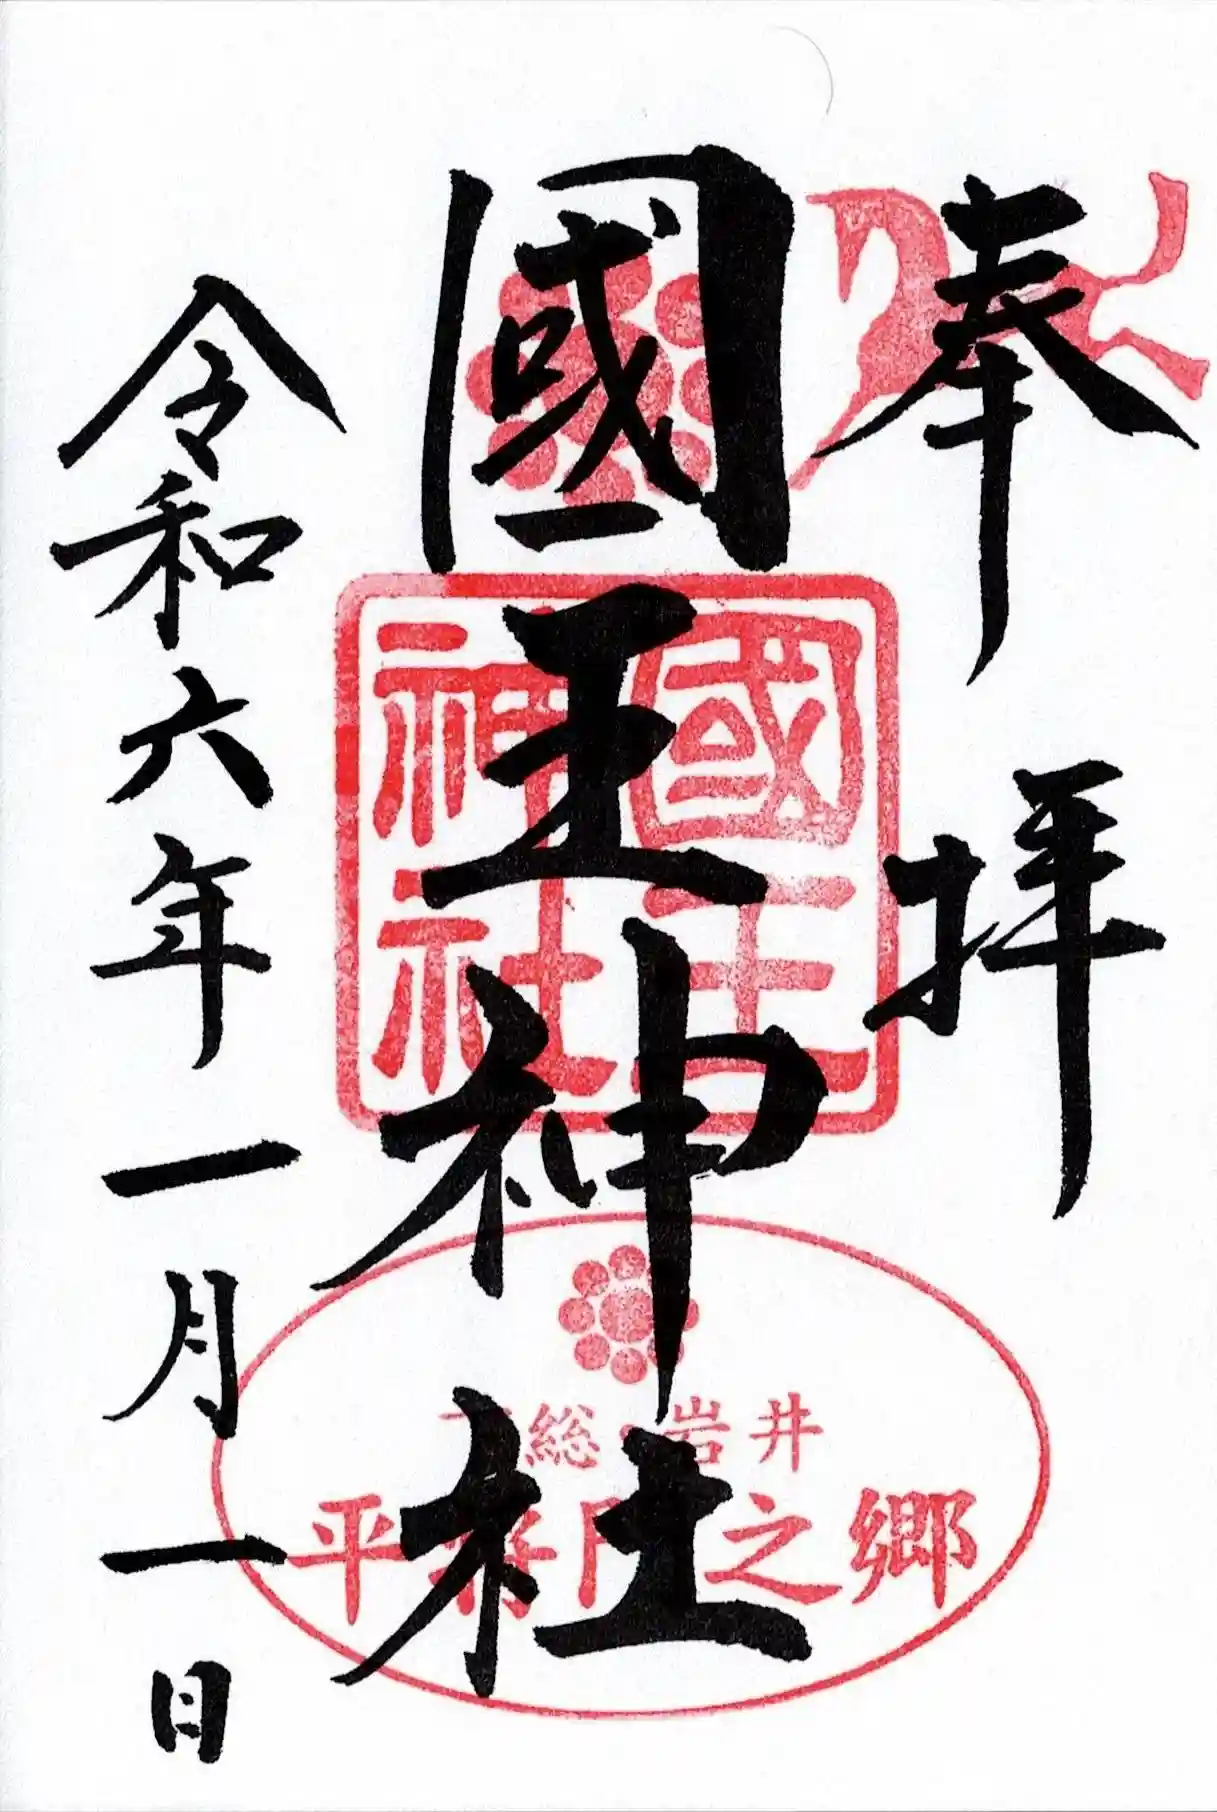 奉拝
國王神社
令和六年一月一日
國王
神社
総 岩井
平将門之郷